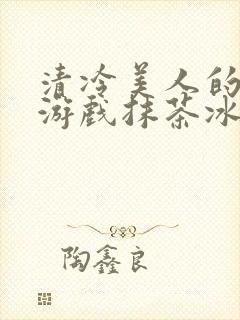 清冷美人的
游戏抹茶冰
陶鑫良